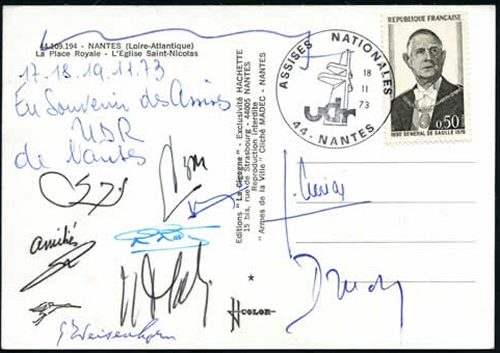 44.109.194 - NANTES (Loire-Atlantique)
La Place Royale - L'Eglise Saint-Nicolas
17.18.19.11.73
En Souvenir des Assises
UDR
de Nantes
Amitiés
G Weisenhorn
Editions "La Cigogne". Exclusivité HACHETTE
15 bis, rue de Strasbourg - 44005 NANTES
Reproduction interdite
"Armes de la Ville" Cliché MADEC - NANTES
COLOR
ASSISES NATIONALES
18
11
73
udr
44 - NANTES
REPUBLIQUE FRANÇAISE
0,50
1890 GENERAL DE GAULLE 1970